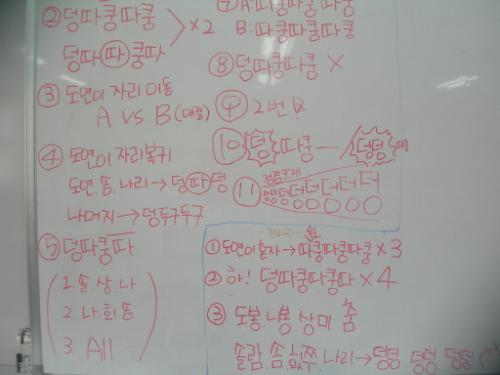 ② 덩따쿵따쿵
덩따(따)쿵따 > ×2
③ 도연이 자리 이동
A vs B (대결)
④ 도연이 자리복귀
도연. 똠. 나리 → 덩(따)덩
나머지 → 덩두구두구
⑤ 덩따쿵따
1. 솔. 상. 나
2. 나. 희. 똠
3. All
A: 따쿵따쿵 따쿵
B: 따쿵따쿵따쿵
⑧ 덩따쿵따쿵 ×
⑨ 2번
⑩ 덩 따쿵 — 덩덩
⑪ 점점크게
덩덩덩덩덩덩덩
① 도연이 혼자 → 따쿵따쿵따쿵 × 3
② 하! 덩따쿵따쿵따 × 4
③ 도봉. 나봉. 상미 춤
솔람. 솜. 나리 → 덩덩. 덩덩 덩덩